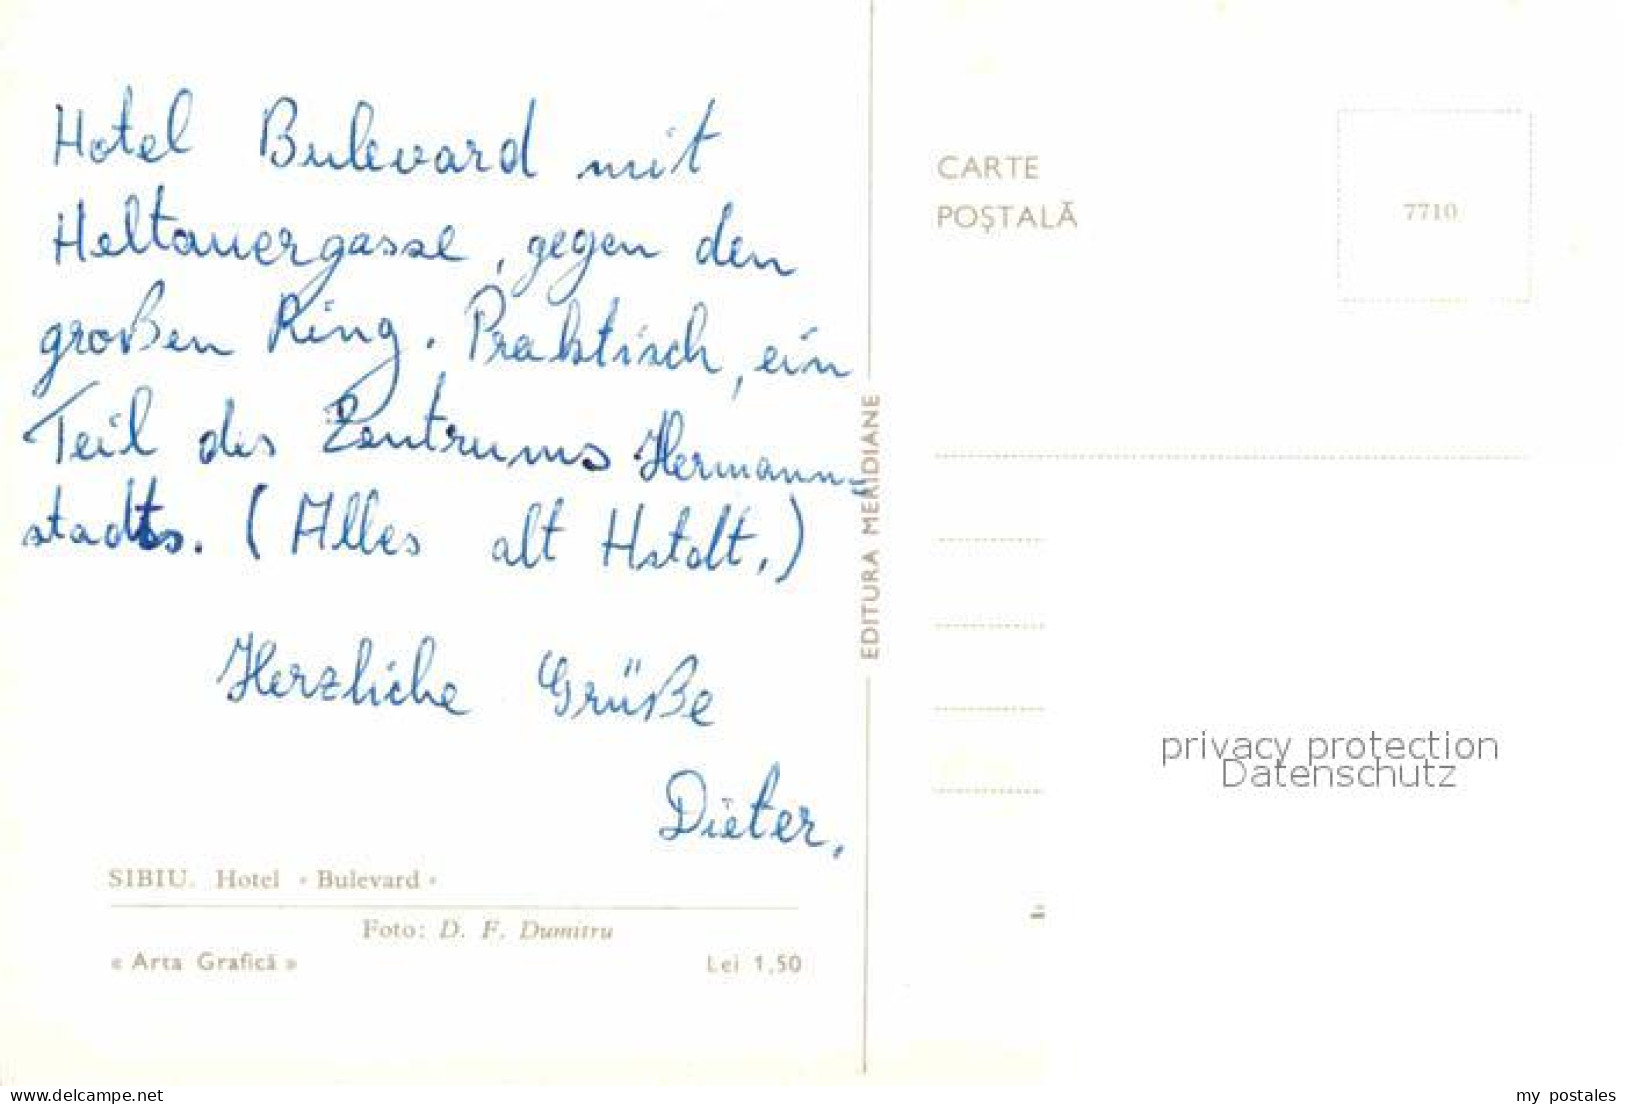 Hotel Bulevard mit
Heltauergasse, gegen den
großen Ring. Praktisch, ein
Teil des Zentrums Hermann-
stadts. (Alles alt Hstdt.)
Herzliche Grüße
Dieter.
SIBIU. Hotel • Bulevard •
Foto: D. F. Dumitru
« Arta Grafică »
Lei 1,50
EDITURA MERIDIANE
CARTE
POȘTALĂ
7710
privacy protection
Datenschutz
www.delcampe.net
my_postales